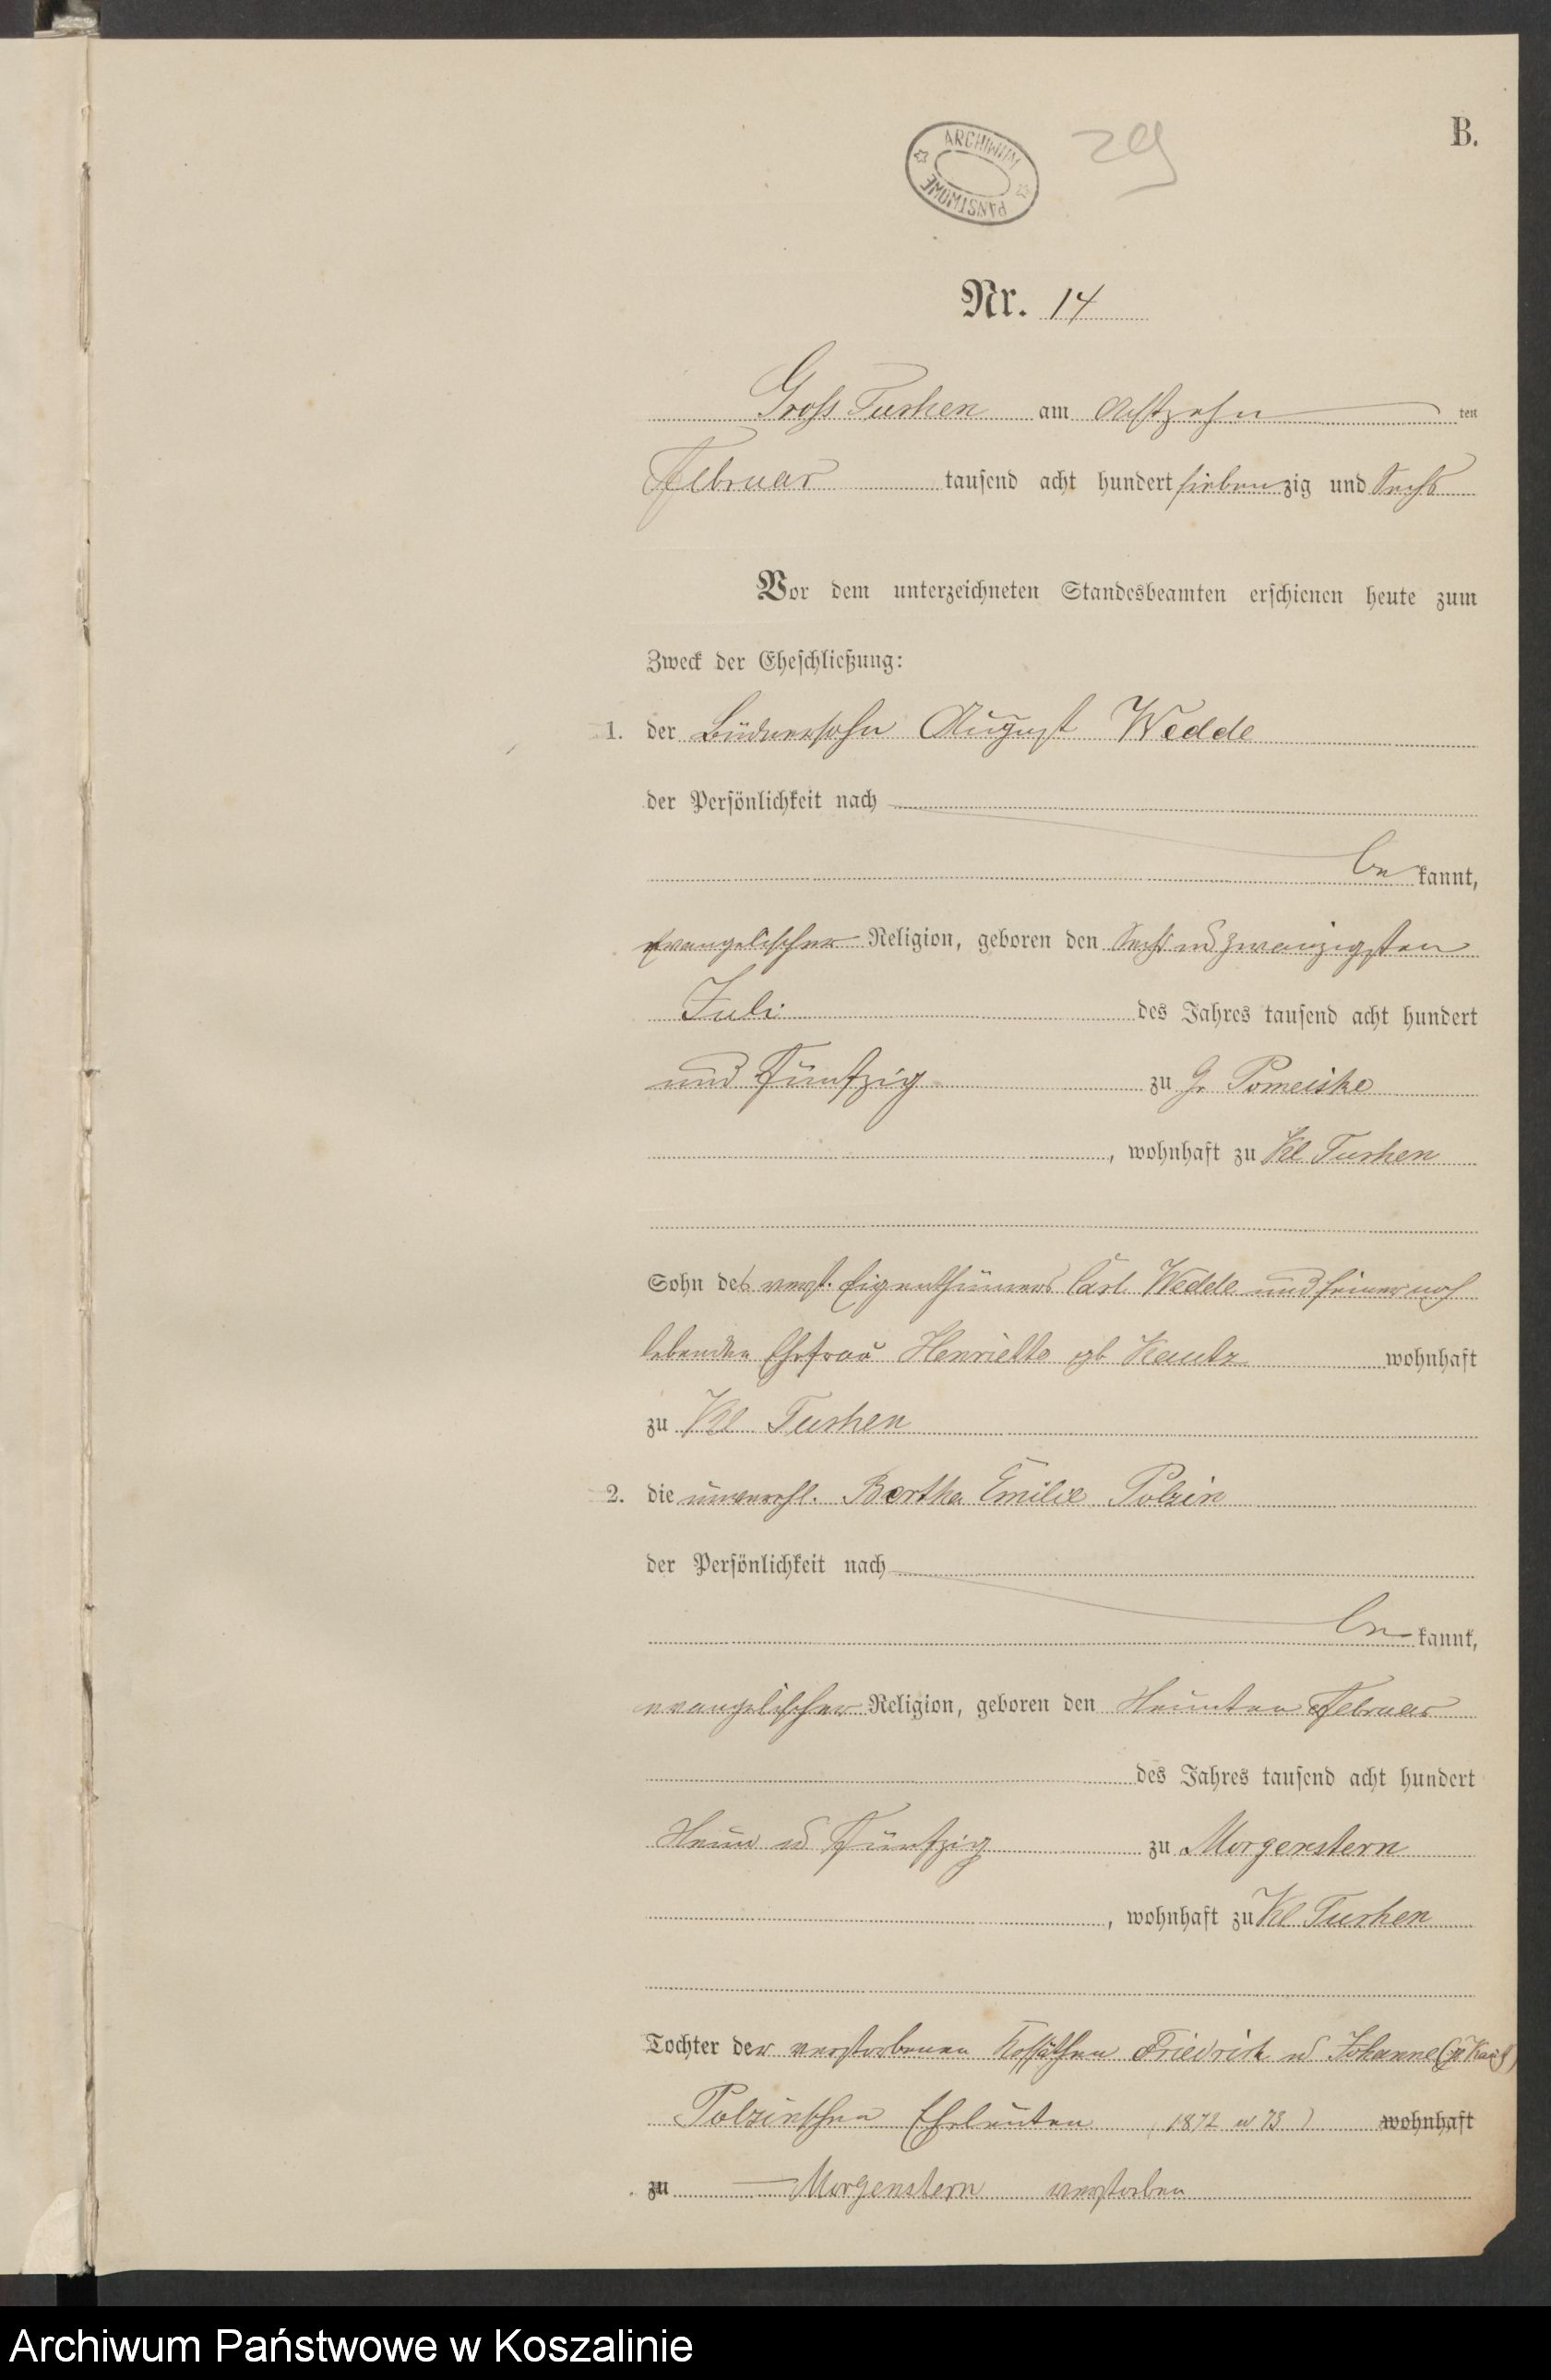 B.
ARCHIWUM PAŃSTWOWE
29
Nr. 14
Gross Tuchen am Achtzehn ten
Februar tausend acht hundert siebenzig und Sechs
Vor dem unterzeichneten Standesbeamten erschienen heute zum
Zweck der Eheschließung:
1. der Büdnersohn August Wedde
der Persönlichkeit nach
be kannt,
evangelischer Religion, geboren den Sechs und zwanzigsten
Juli des Jahres tausend acht hundert
und Fünfzig zu Gr Pomeiske
, wohnhaft zu Kl Tuchen
Sohn des verst. Eigenthümers Carl Wedde und seiner noch
lebenden Ehefrau Henriette gb Kautz wohnhaft
zu Kl Tuchen
2. die unverehl. Bertha Emilie Polzin
der Persönlichkeit nach
be kannt,
evangelischer Religion, geboren den Neunten Februar
des Jahres tausend acht hundert
Neun ud Fünfzig zu Morgenstern
, wohnhaft zu Kl Tuchen
Tochter der verstorbenen Kossäthen Friedrich ud Johanne
Polzinschen Eheleuten (1872 u 73) wohnhaft
zu Morgenstern verstorben
Archiwum Państwowe w Koszalinie